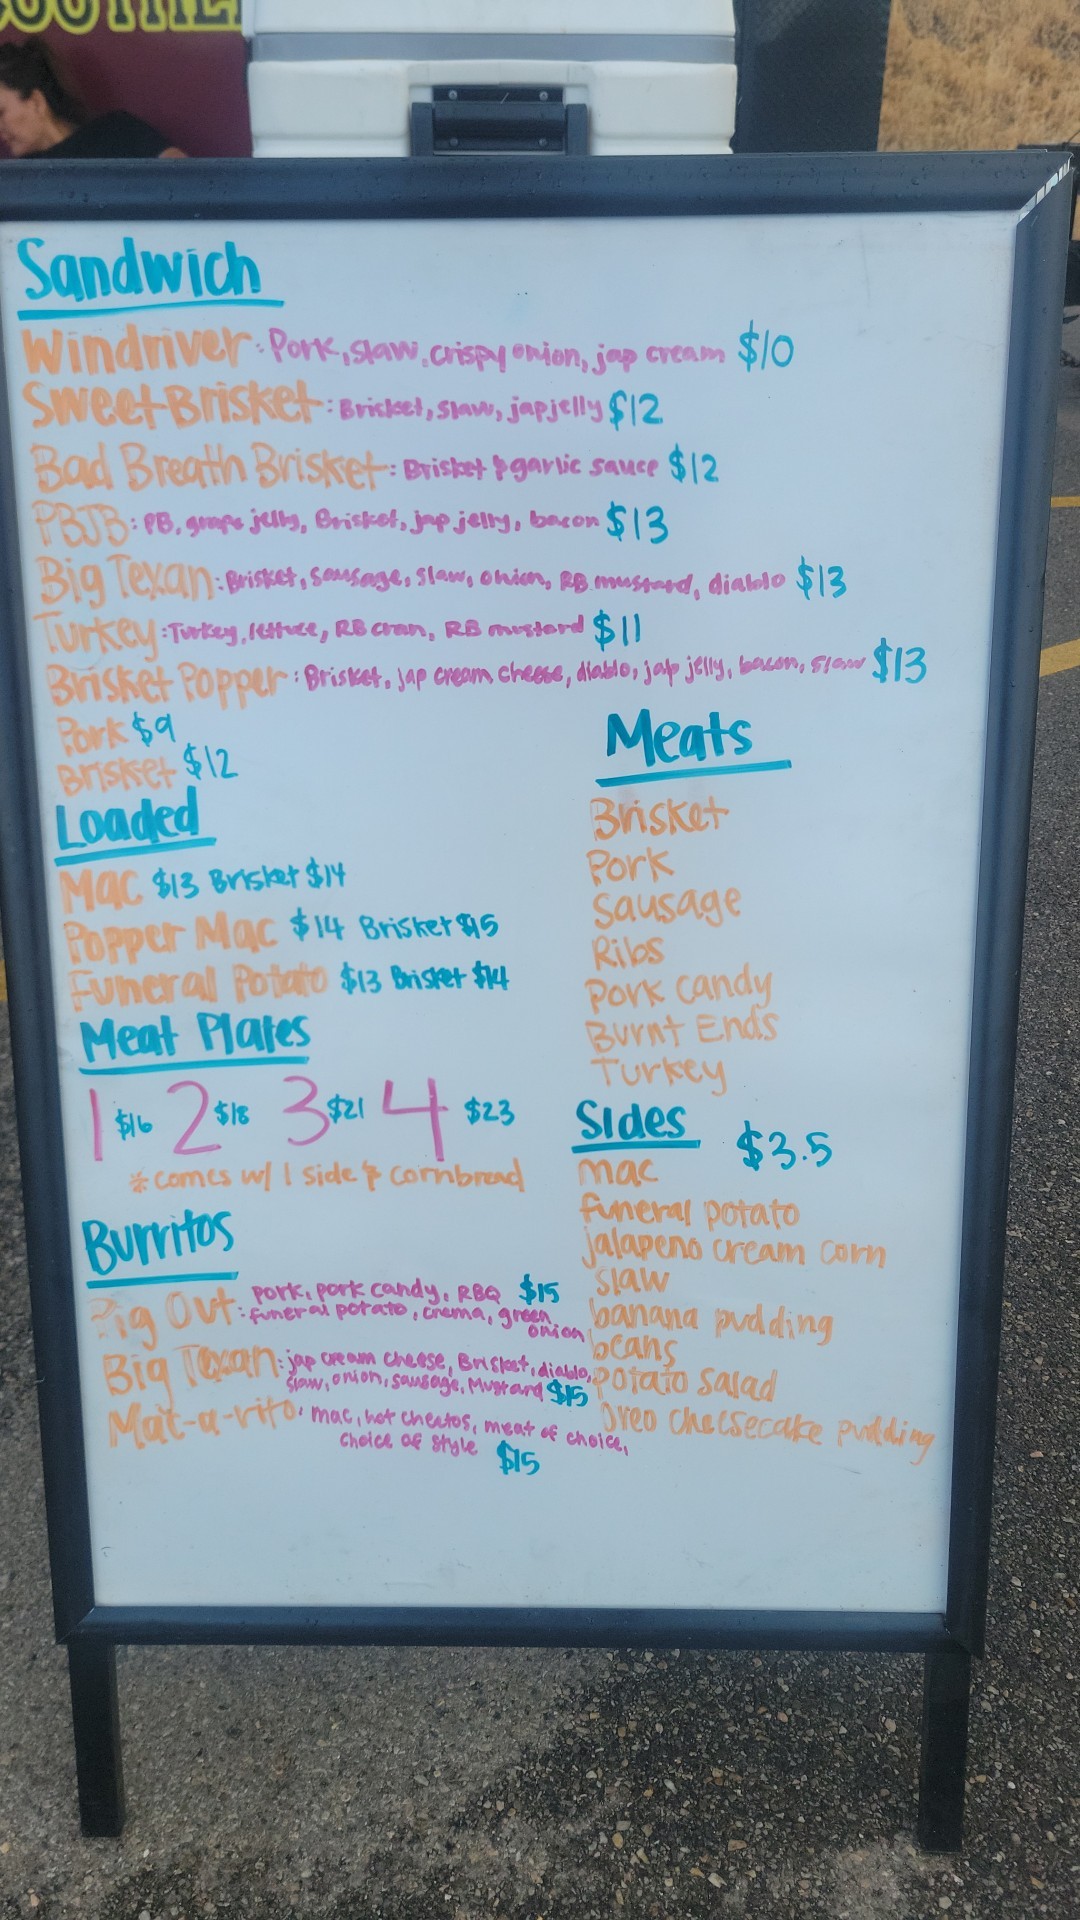 Sandwich
Windriver: Pork, slaw, crispy onion, jap cream $10
Sweet Brisket: Bricket, slaw, jap jelly $12
Bad Breath Brisket: Brisket & garlic sauce $12
PBJB: PB, grape jelly, Brisket, jap jelly, bacon $13
Big Texan: Brisket, Sausage, slaw, onion, RB mustard, diablo $13
Turkey: Turkey, lettuce, RB cran, RB mustard $11
Brisket Popper: Brisket, jap cream cheese, diablo, jalp jelly, bacon, slaw $13
Pork $9
Brisket $12
Loaded
Mac $13 Brisket $14
Popper Mac $14 Brisket $15
Funeral Potato $13 Brisket $14
Meat Plates
1 $16 2 $18 3 $21 4 $23
* comes w/ 1 side & cornbread
Burritos
Pig Out: pork, pork candy, RBQ $15
funeral potato, crema, green
onion
Big Texan: jap cream cheese, Brisket, diablo,
slaw, onion, sausage, Mustard $15
Mac-a-rito: mac, hot cheetos, meat of choice,
choice of style $15
Meats
Brisket
Pork
Sausage
Ribs
Pork Candy
Burnt Ends
Turkey
Sides $3.5
mac
funeral potato
jalapeno cream corn
slaw
banana pudding
beans
Potato Salad
Oreo cheesecake pudding